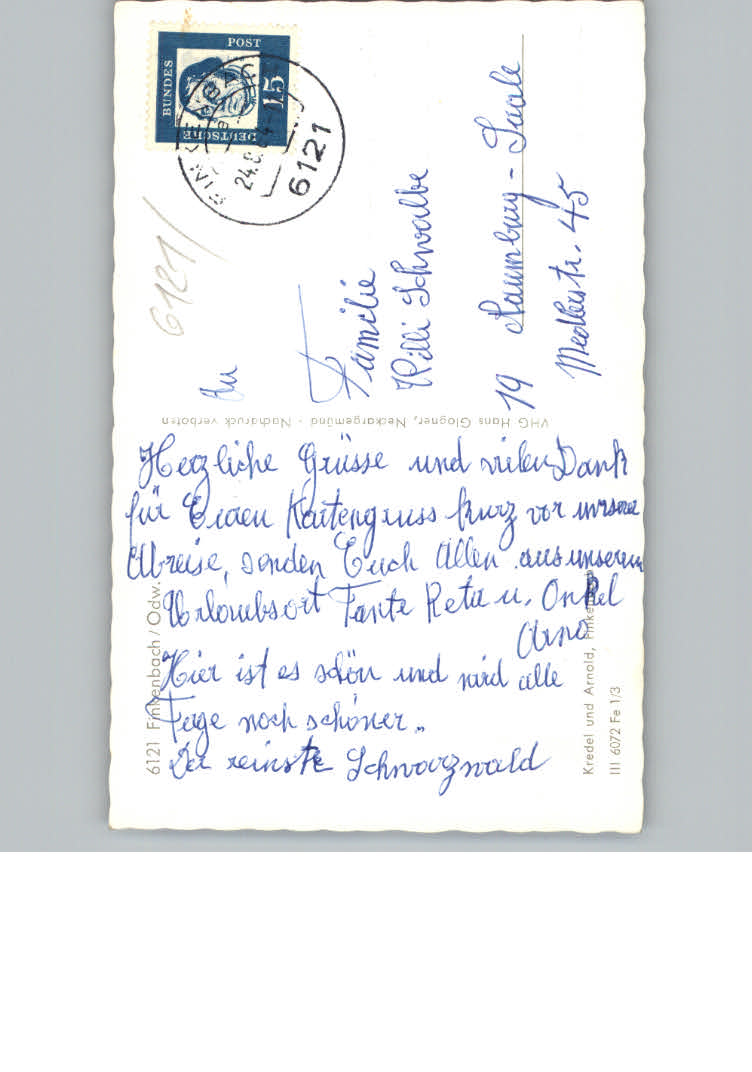 DEUTSCHE
BUNDES
POST
15
FINKENBACH
24.8.
6121
6121/
An
Familie
Willi Schwalbe
79 Naumburg - Saale
Medlerstr. 45
VHG Hans Glogner, Neckargemünd - Nachdruck verboten
Herzliche Grüsse und vielen Dank
für Euren Kartengruss kurz vor unserer
Abreise, senden Euch Allen aus unserem
Urlaubsort Tante Reta u. Onkel
Arno
Hier ist es schön und wird alle
Tage noch schöner..
Der reinste Schwarzwald
6121 Finkenbach / Odw.
Kredel und Arnold, Finkenbach
III 6072 Fe 1/3